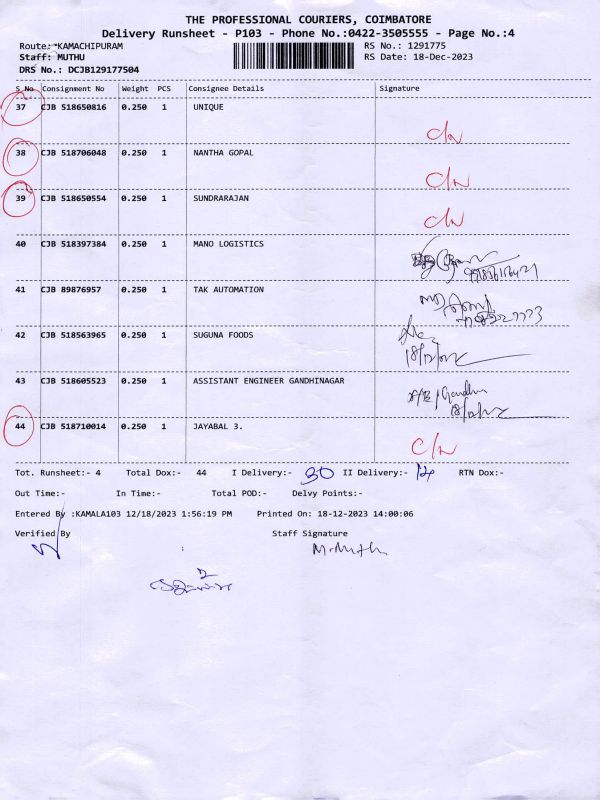 THE PROFESSIONAL COURIERS, COIMBATORE
Delivery Runsheet - P103 - Phone No.:0422-3505555 - Page No.:4
Route: *KAMACHIPURAM RS No.: 1291775
Staff: MUTHU RS Date: 18-Dec-2023
DRS No.: DCJB129177504
S No Consignment No Weight PCS Consignee Details Signature
37 CJB 518650816 0.250 1 UNIQUE
C/N
38 CJB 518706048 0.250 1 NANTHA GOPAL
C/N
39 CJB 518650554 0.250 1 SUNDRARAJAN
C/N
40 CJB 518397384 0.250 1 MANO LOGISTICS
41 CJB 89876957 0.250 1 TAK AUTOMATION
42 CJB 518563965 0.250 1 SUGUNA FOODS
18/12/
43 CJB 518605523 0.250 1 ASSISTANT ENGINEER GANDHINAGAR
18/12/
44 CJB 518710014 0.250 1 JAYABAL 3.
C/N
Tot. Runsheet:- 4 Total Dox:- 44 I Delivery:- 30 II Delivery:- 14 RTN Dox:-
Out Time:- In Time:- Total POD:- Delvy Points:-
Entered By :KAMALA103 12/18/2023 1:56:19 PM Printed On: 18-12-2023 14:00:06
Verified By Staff Signature
M. Muthu